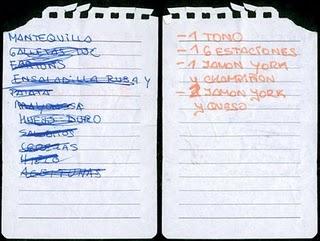 MANTEQUILLA
GALLETAS TUC
ENSALADILLA RUSA Y
PATATA
MAYONESA
HUEVO DURO
SALADITOS
CEREZAS
HIELO
ACEITUNAS
- 1 TONO
- 1 6 ESTACIONES
- 1 JAMON YORK
Y CHAMPIÑON
- 2 JAMON YORK
Y QUESO